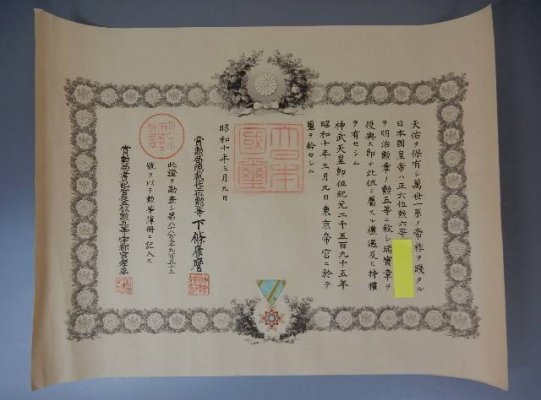 天佑ヲ保有シ萬世一系ノ帝祚ヲ踐タル
日本國皇帝ハ正六位勲六等
ヲ明治勲章ノ勲五等ニ敍シ瑞寶章ヲ
授與ス即チ此位ニ屬スル禮遇及ヒ特權
ヲ有セシム
神武天皇即位紀元二千五百九十五年
昭和十年三月九日東京帝宮ニ於テ
璽ヲ鈐セシム
大日本國璽
昭和十年三月九日
賞勲局總裁 下條康麿
此證ヲ勘査シ第
號ヲ以テ勲等簿冊ニ記入ス
賞勲局書記官 宇都宮孝平